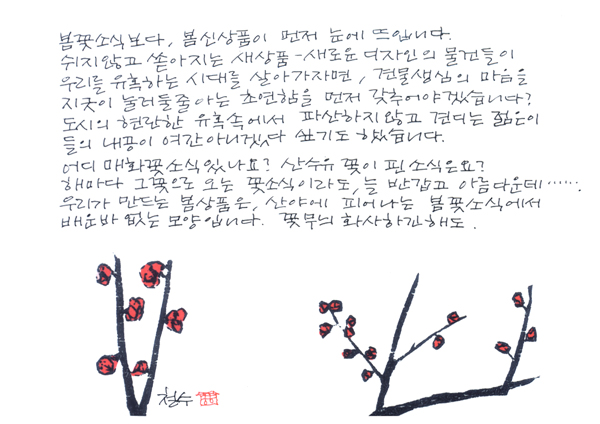 봄꽃소식보다, 봄신상품이 먼저 눈에 뜨입니다.
쉬지않고 쏟아지는 새상품-새로운 디자인의 물건들이
우리를 유혹하는 시대를 살아가자면, 견물생심의 마음을
지긋이 눌러둘줄아는 초연함을 먼저 갖추어야겠습니다?
도시의 현란한 유혹속에서 파산하지않고 견디는 젊은이
들의 내공이 여간아니겠다 싶기도 했습니다.
어디 매화꽃소식있나요? 산수유 꽃이 핀소식은요?
해마다 그꽃으로 오는 꽃소식이라도, 늘 반갑고 아름다운데……
우리가 만드는 봄상품은, 산야에 피어나는 봄꽃소식에서
배운바 없는 모양입니다. 꽃무늬 화사하긴해도.
철수